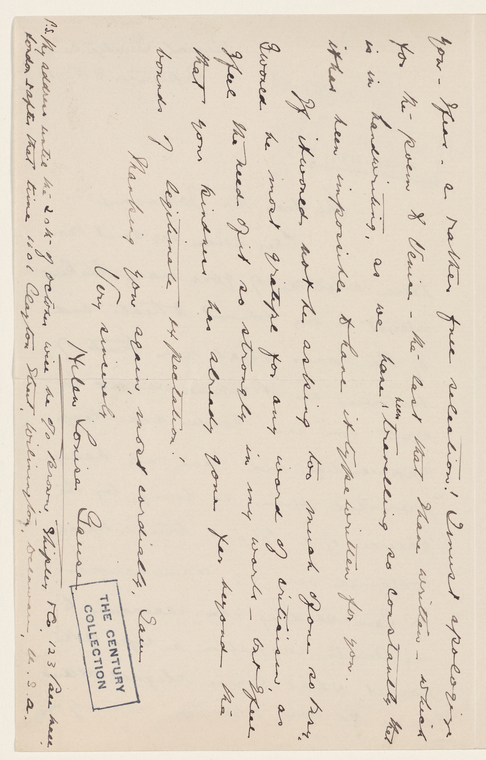 you - I fear - a rather free selection! I must apologize
for the poem to Venice - the last that I have written - which
is in handwriting, as we have been travelling so constantly that
it has been impossible to have it typewritten for you.
If it would not be asking too much of one so busy,
I would be most grateful for any word of criticism, as
I feel the need of it so strongly in my work - but I feel
that your kindness has already gone far beyond the
bounds of legitimate expectation!
Thanking you again, most cordially, I am
Very sincerely
Helen Louisa Gause
P.S. My address until the 25th of October will be c/o Brown, Shipley & Co. 123 Pall Mall
London & after that time 1101 Clayton Street, Wilmington, Delaware, U.S.A.
THE CENTURY
COLLECTION